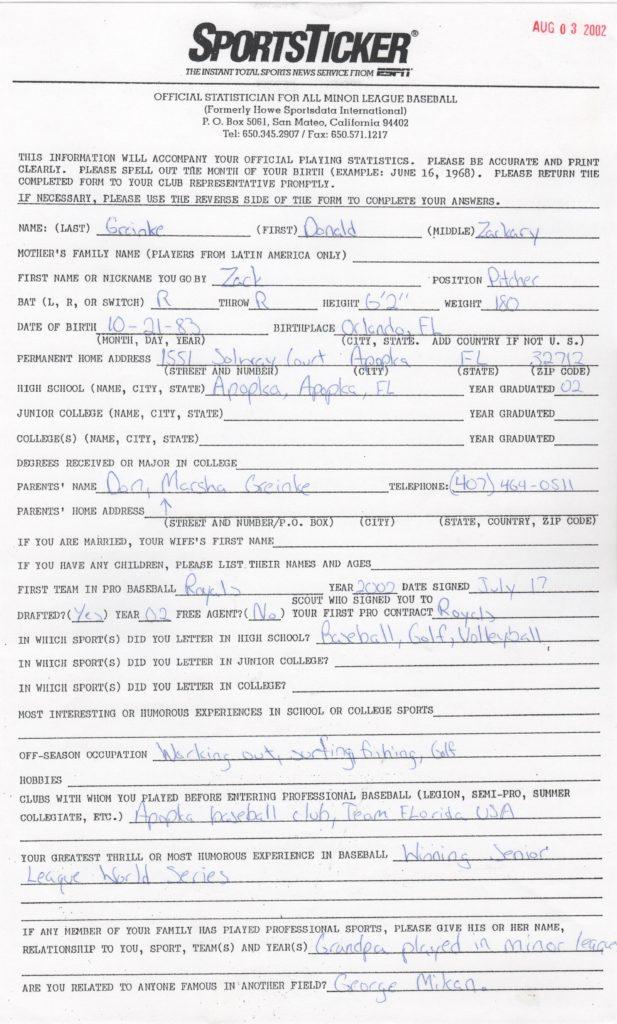 AUG 03 2002
SPORTSTICKER®
THE INSTANT TOTAL SPORTS NEWS SERVICE FROM ESPN
OFFICIAL STATISTICIAN FOR ALL MINOR LEAGUE BASEBALL
(Formerly Howe Sportsdata International)
P. O. Box 5061, San Mateo, California 94402
Tel: 650.345.2907 / Fax: 650.571.1217
THIS INFORMATION WILL ACCOMPANY YOUR OFFICIAL PLAYING STATISTICS. PLEASE BE ACCURATE AND PRINT
CLEARLY. PLEASE SPELL OUT THE MONTH OF YOUR BIRTH (EXAMPLE: JUNE 16, 1968). PLEASE RETURN THE
COMPLETED FORM TO YOUR CLUB REPRESENTATIVE PROMPTLY.
IF NECESSARY, PLEASE USE THE REVERSE SIDE OF THE FORM TO COMPLETE YOUR ANSWERS.
NAME: (LAST) Greinke (FIRST) Donald (MIDDLE) Zackary
MOTHER'S FAMILY NAME (PLAYERS FROM LATIN AMERICA ONLY)
FIRST NAME OR NICKNAME YOU GO BY Zack POSITION Pitcher
BAT (L, R, OR SWITCH) R THROW R HEIGHT 6'2" WEIGHT 180
DATE OF BIRTH 10-21-83 BIRTHPLACE Orlando, FL
(MONTH, DAY, YEAR) (CITY, STATE. ADD COUNTRY IF NOT U. S.)
PERMANENT HOME ADDRESS 1551 Court Apopka FL 32712
(STREET AND NUMBER) (CITY) (STATE) (ZIP CODE)
HIGH SCHOOL (NAME, CITY, STATE) Apopka, Apopka, FL YEAR GRADUATED 02
JUNIOR COLLEGE (NAME, CITY, STATE) YEAR GRADUATED
COLLEGE(S) (NAME, CITY, STATE) YEAR GRADUATED
DEGREES RECEIVED OR MAJOR IN COLLEGE
PARENTS' NAME Don, Marsha Greinke TELEPHONE: (407) 464-0511
PARENTS' HOME ADDRESS ↑
(STREET AND NUMBER/P.O. BOX) (CITY) (STATE, COUNTRY, ZIP CODE)
IF YOU ARE MARRIED, YOUR WIFE'S FIRST NAME
IF YOU HAVE ANY CHILDREN, PLEASE LIST THEIR NAMES AND AGES
FIRST TEAM IN PRO BASEBALL Royals YEAR 2002 DATE SIGNED July 17
SCOUT WHO SIGNED YOU TO
DRAFTED? (Yes) YEAR 02 FREE AGENT? (No) YOUR FIRST PRO CONTRACT Royals
IN WHICH SPORT(S) DID YOU LETTER IN HIGH SCHOOL? Baseball, Golf, Volleyball
IN WHICH SPORT(S) DID YOU LETTER IN JUNIOR COLLEGE?
IN WHICH SPORT(S) DID YOU LETTER IN COLLEGE?
MOST INTERESTING OR HUMOROUS EXPERIENCES IN SCHOOL OR COLLEGE SPORTS
OFF-SEASON OCCUPATION Working out, surfing fishing, Golf
HOBBIES
CLUBS WITH WHOM YOU PLAYED BEFORE ENTERING PROFESSIONAL BASEBALL (LEGION, SEMI-PRO, SUMMER
COLLEGIATE, ETC.) Apopka baseball club, Team FLorida USA
YOUR GREATEST THRILL OR MOST HUMOROUS EXPERIENCE IN BASEBALL Winning Senior
League World Series
IF ANY MEMBER OF YOUR FAMILY HAS PLAYED PROFESSIONAL SPORTS, PLEASE GIVE HIS OR HER NAME,
RELATIONSHIP TO YOU, SPORT, TEAM(S) AND YEAR(S) Grandpa played in minor league
ARE YOU RELATED TO ANYONE FAMOUS IN ANOTHER FIELD? George Mikan.